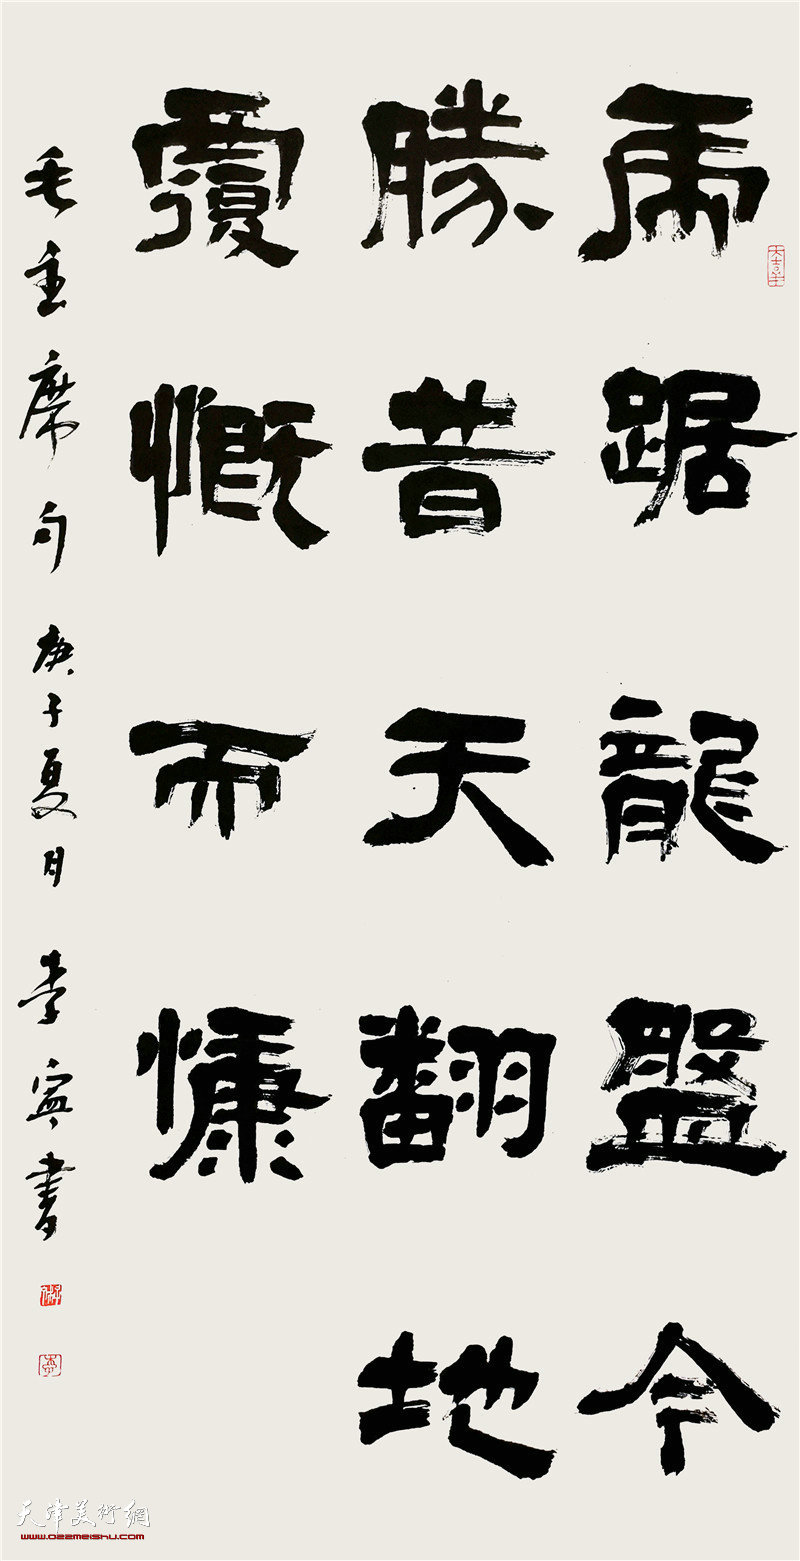 虎踞龍盤今
勝昔天翻地
覆慨而慷
毛主席句 庚子夏月 李寧書
天津美術網
www.022meishu.com